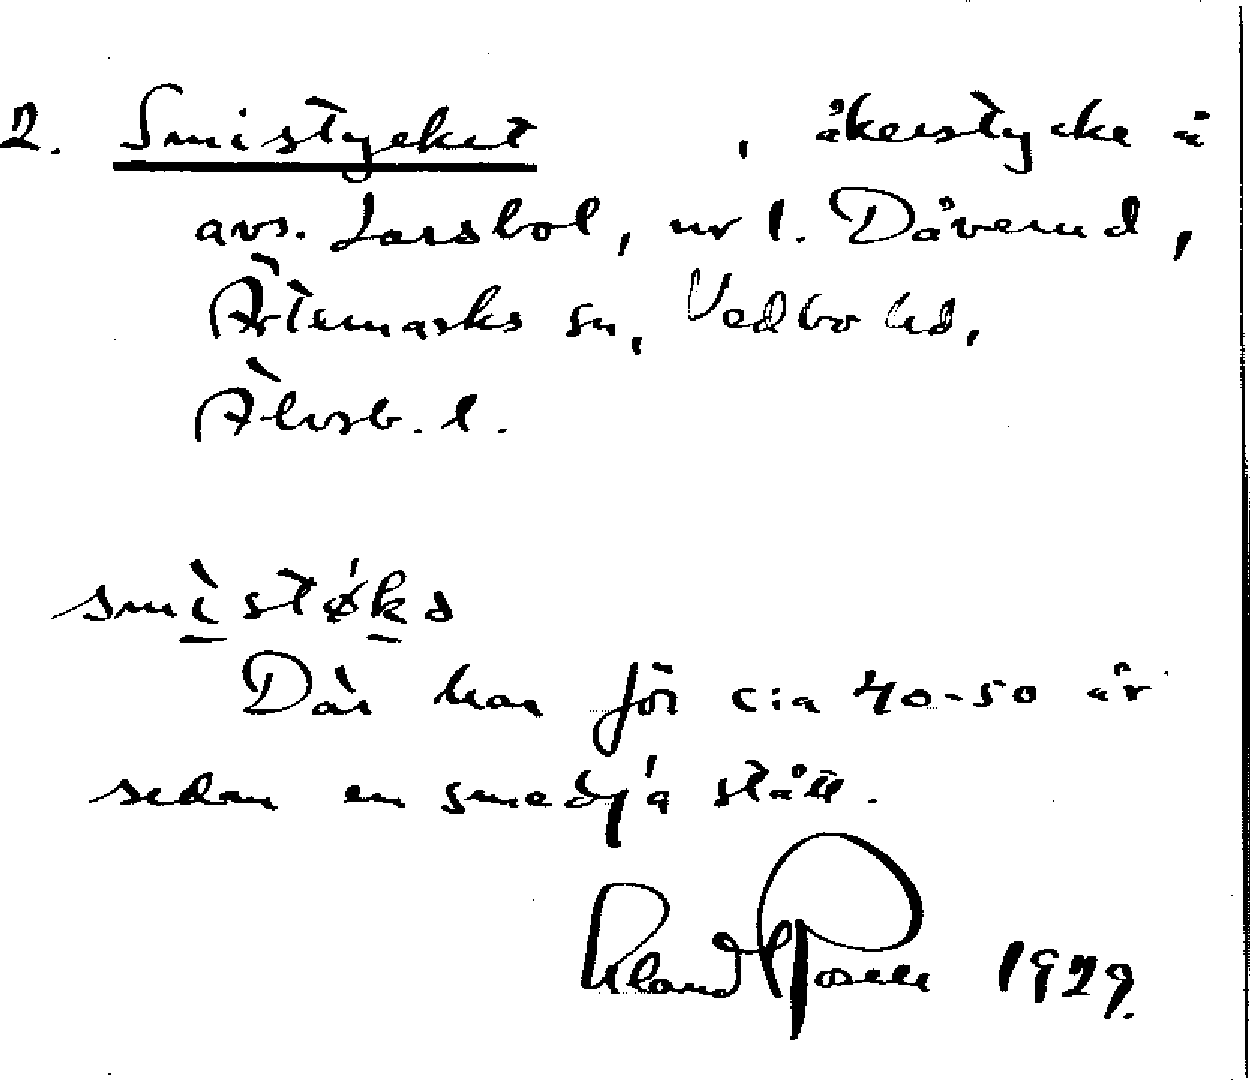 2. Smistycket , åkerstycke å
avs. Larsbol, nr 1. Dåverud,
Ärtemarks sn, Vedbo hd,
Älvsb. l.
smìstǿks
Där har för c:a 40-50 år
sedan en smedja stått.
Erland Rosell 1929.